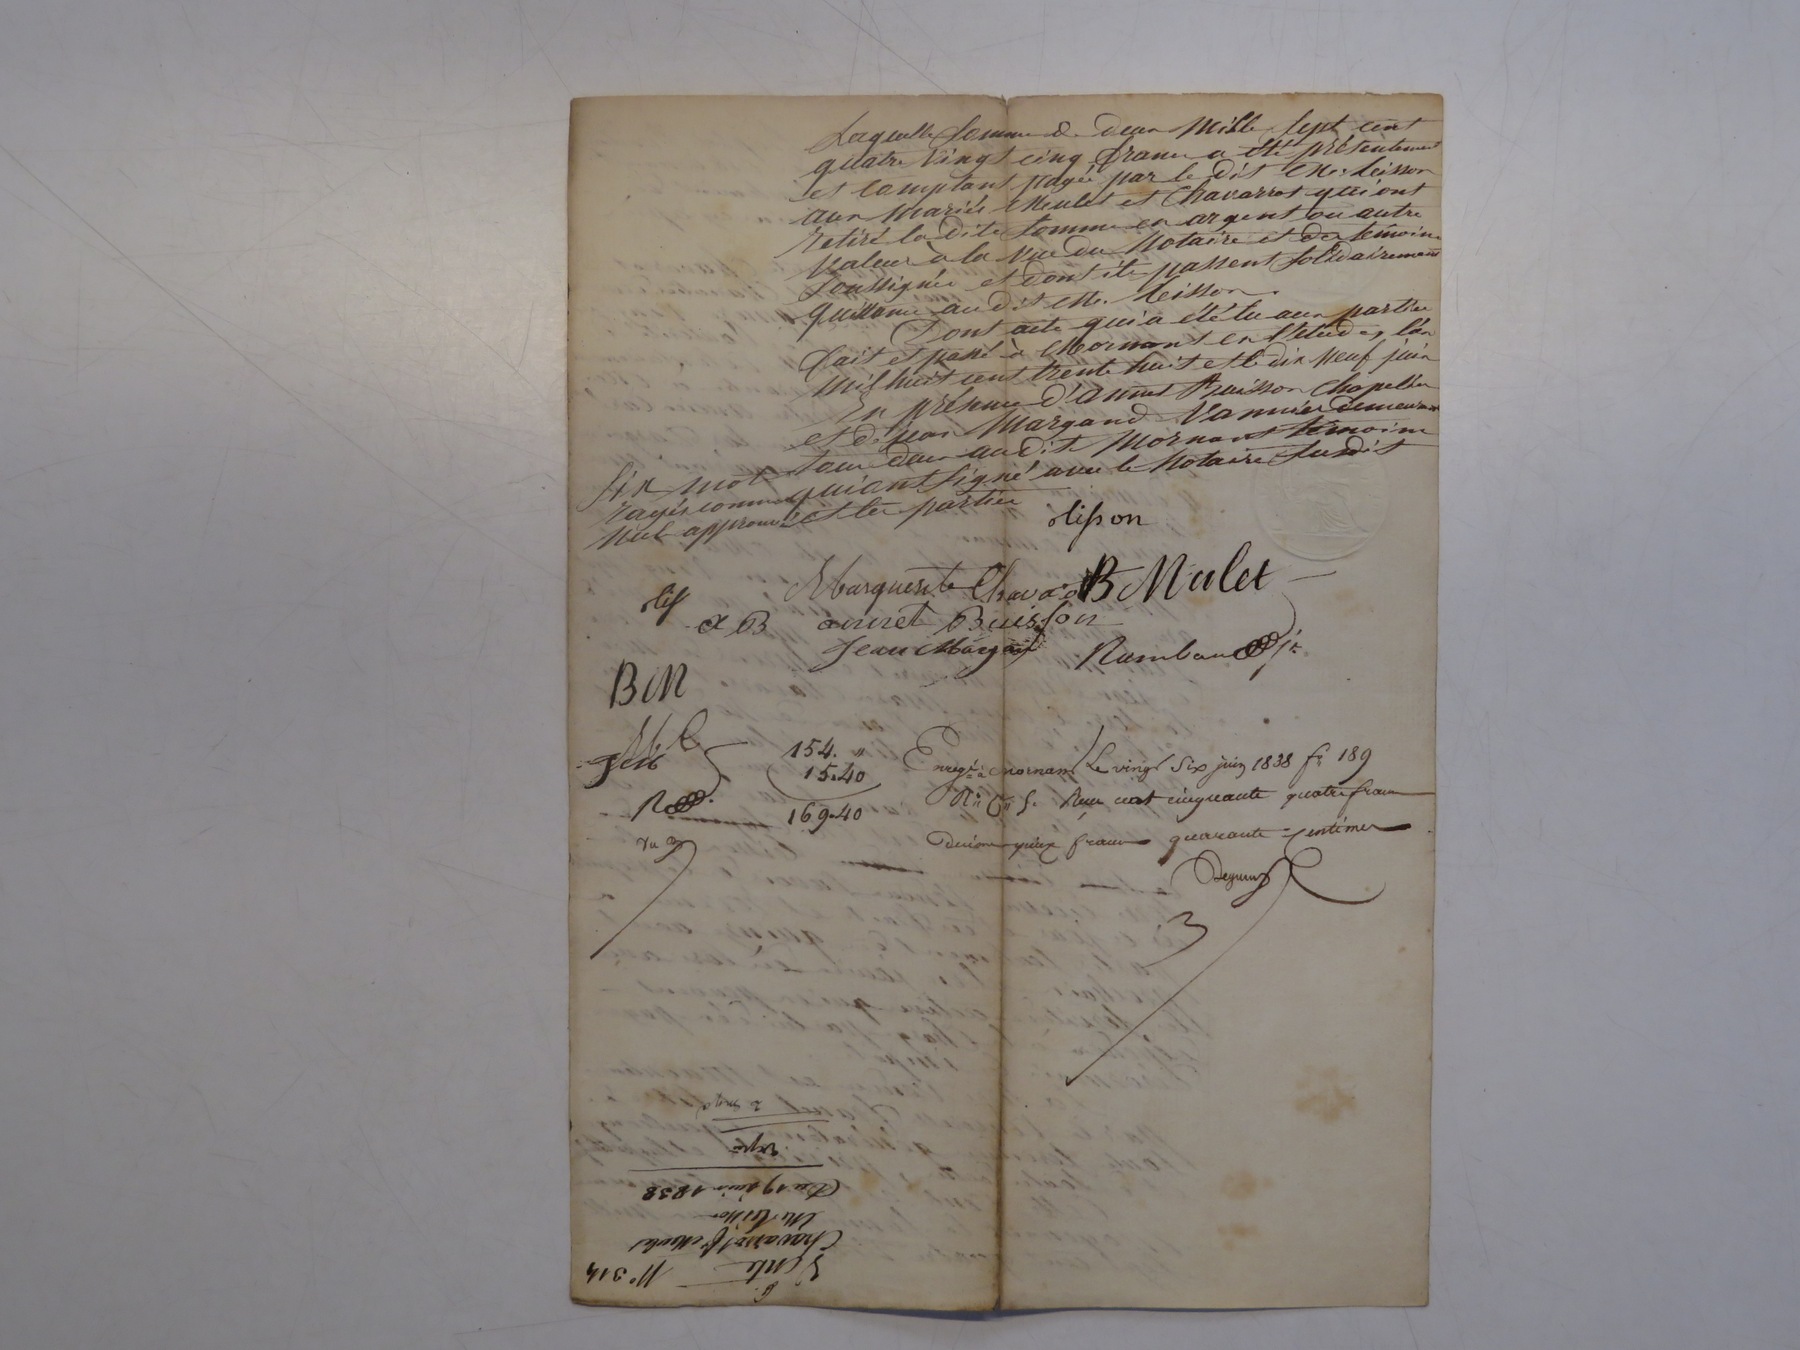 Laquelle somme de deux mille sept cent
quatre vingt cinq francs a été présentement
et comptant payée par le dit Mr. Lisson
aux mariés Mulet et Chavarrot qui ont
retiré la dite somme en argent ou autre
valeur à la vue du Notaire et des témoins
soussignés et dont ils passent solidairement
quittance au dit Mr. Lisson.
Dont acte qui a été lu aux parties
fait et passé à Mornant en l'étude, l'an
mil huit cent trente huit et le dix neuf juin
En présence d'annet Buisson Chapelier
et de jean Margand Vannier demeurant
tous deux au dit Mornant témoins
qui ont signé avec le Notaire susdit
et les parties
Six mots
rayés comme
nuls approuvés
Lisson
Marguerite Chava
B Mulet
Lis
a B
annet Buisson
Jean Margand
Rambaud jne
B M
M C
154. "
15.40
169.40
Enregé. à Mornant Le vingt six juin 1838 fo 189
Ro. Co. 5. Reçu cent cinquante quatre francs
décime quinze francs quarante centimes
3
Expé
Du 19 juin 1838
Mr Lisson
Chavarrot fe Mulet
Vente
No 314